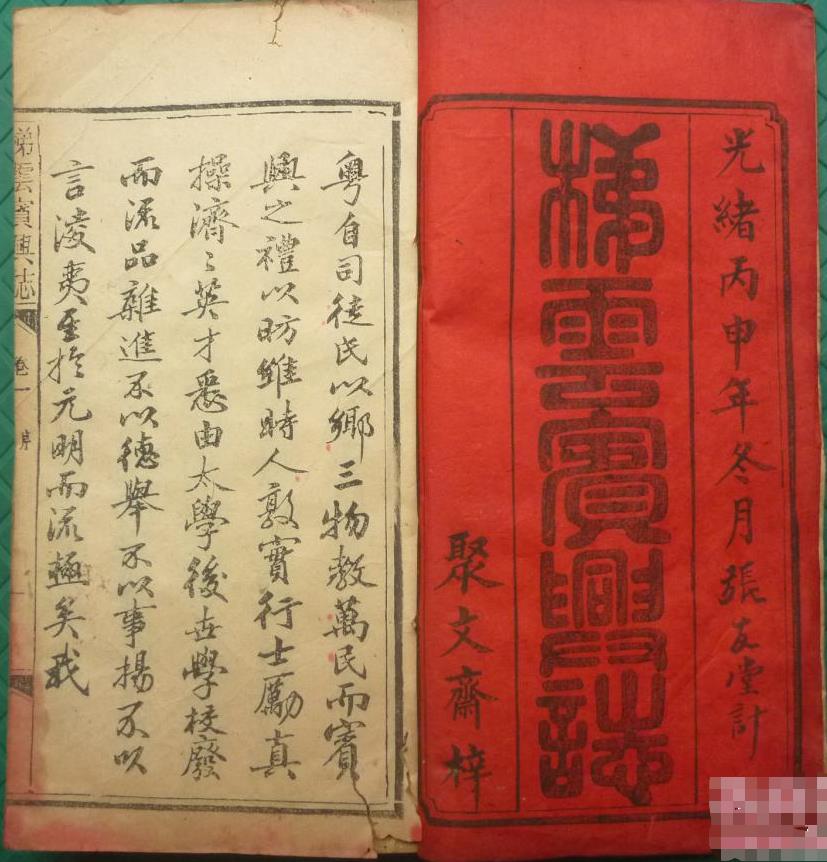 光緒丙申年冬月張友堂計
梯雲賓興誌
聚文齋梓
粵自司徒氏以鄉三物教萬民而賓
興之禮以昉維時人敦實行士勵真
操濟〻英才悉由太學後世學校廢
而流品雜進不以德舉不以事揚不以
言淩夷至於元明而流極矣我
梯雲賓興志 卷一 序